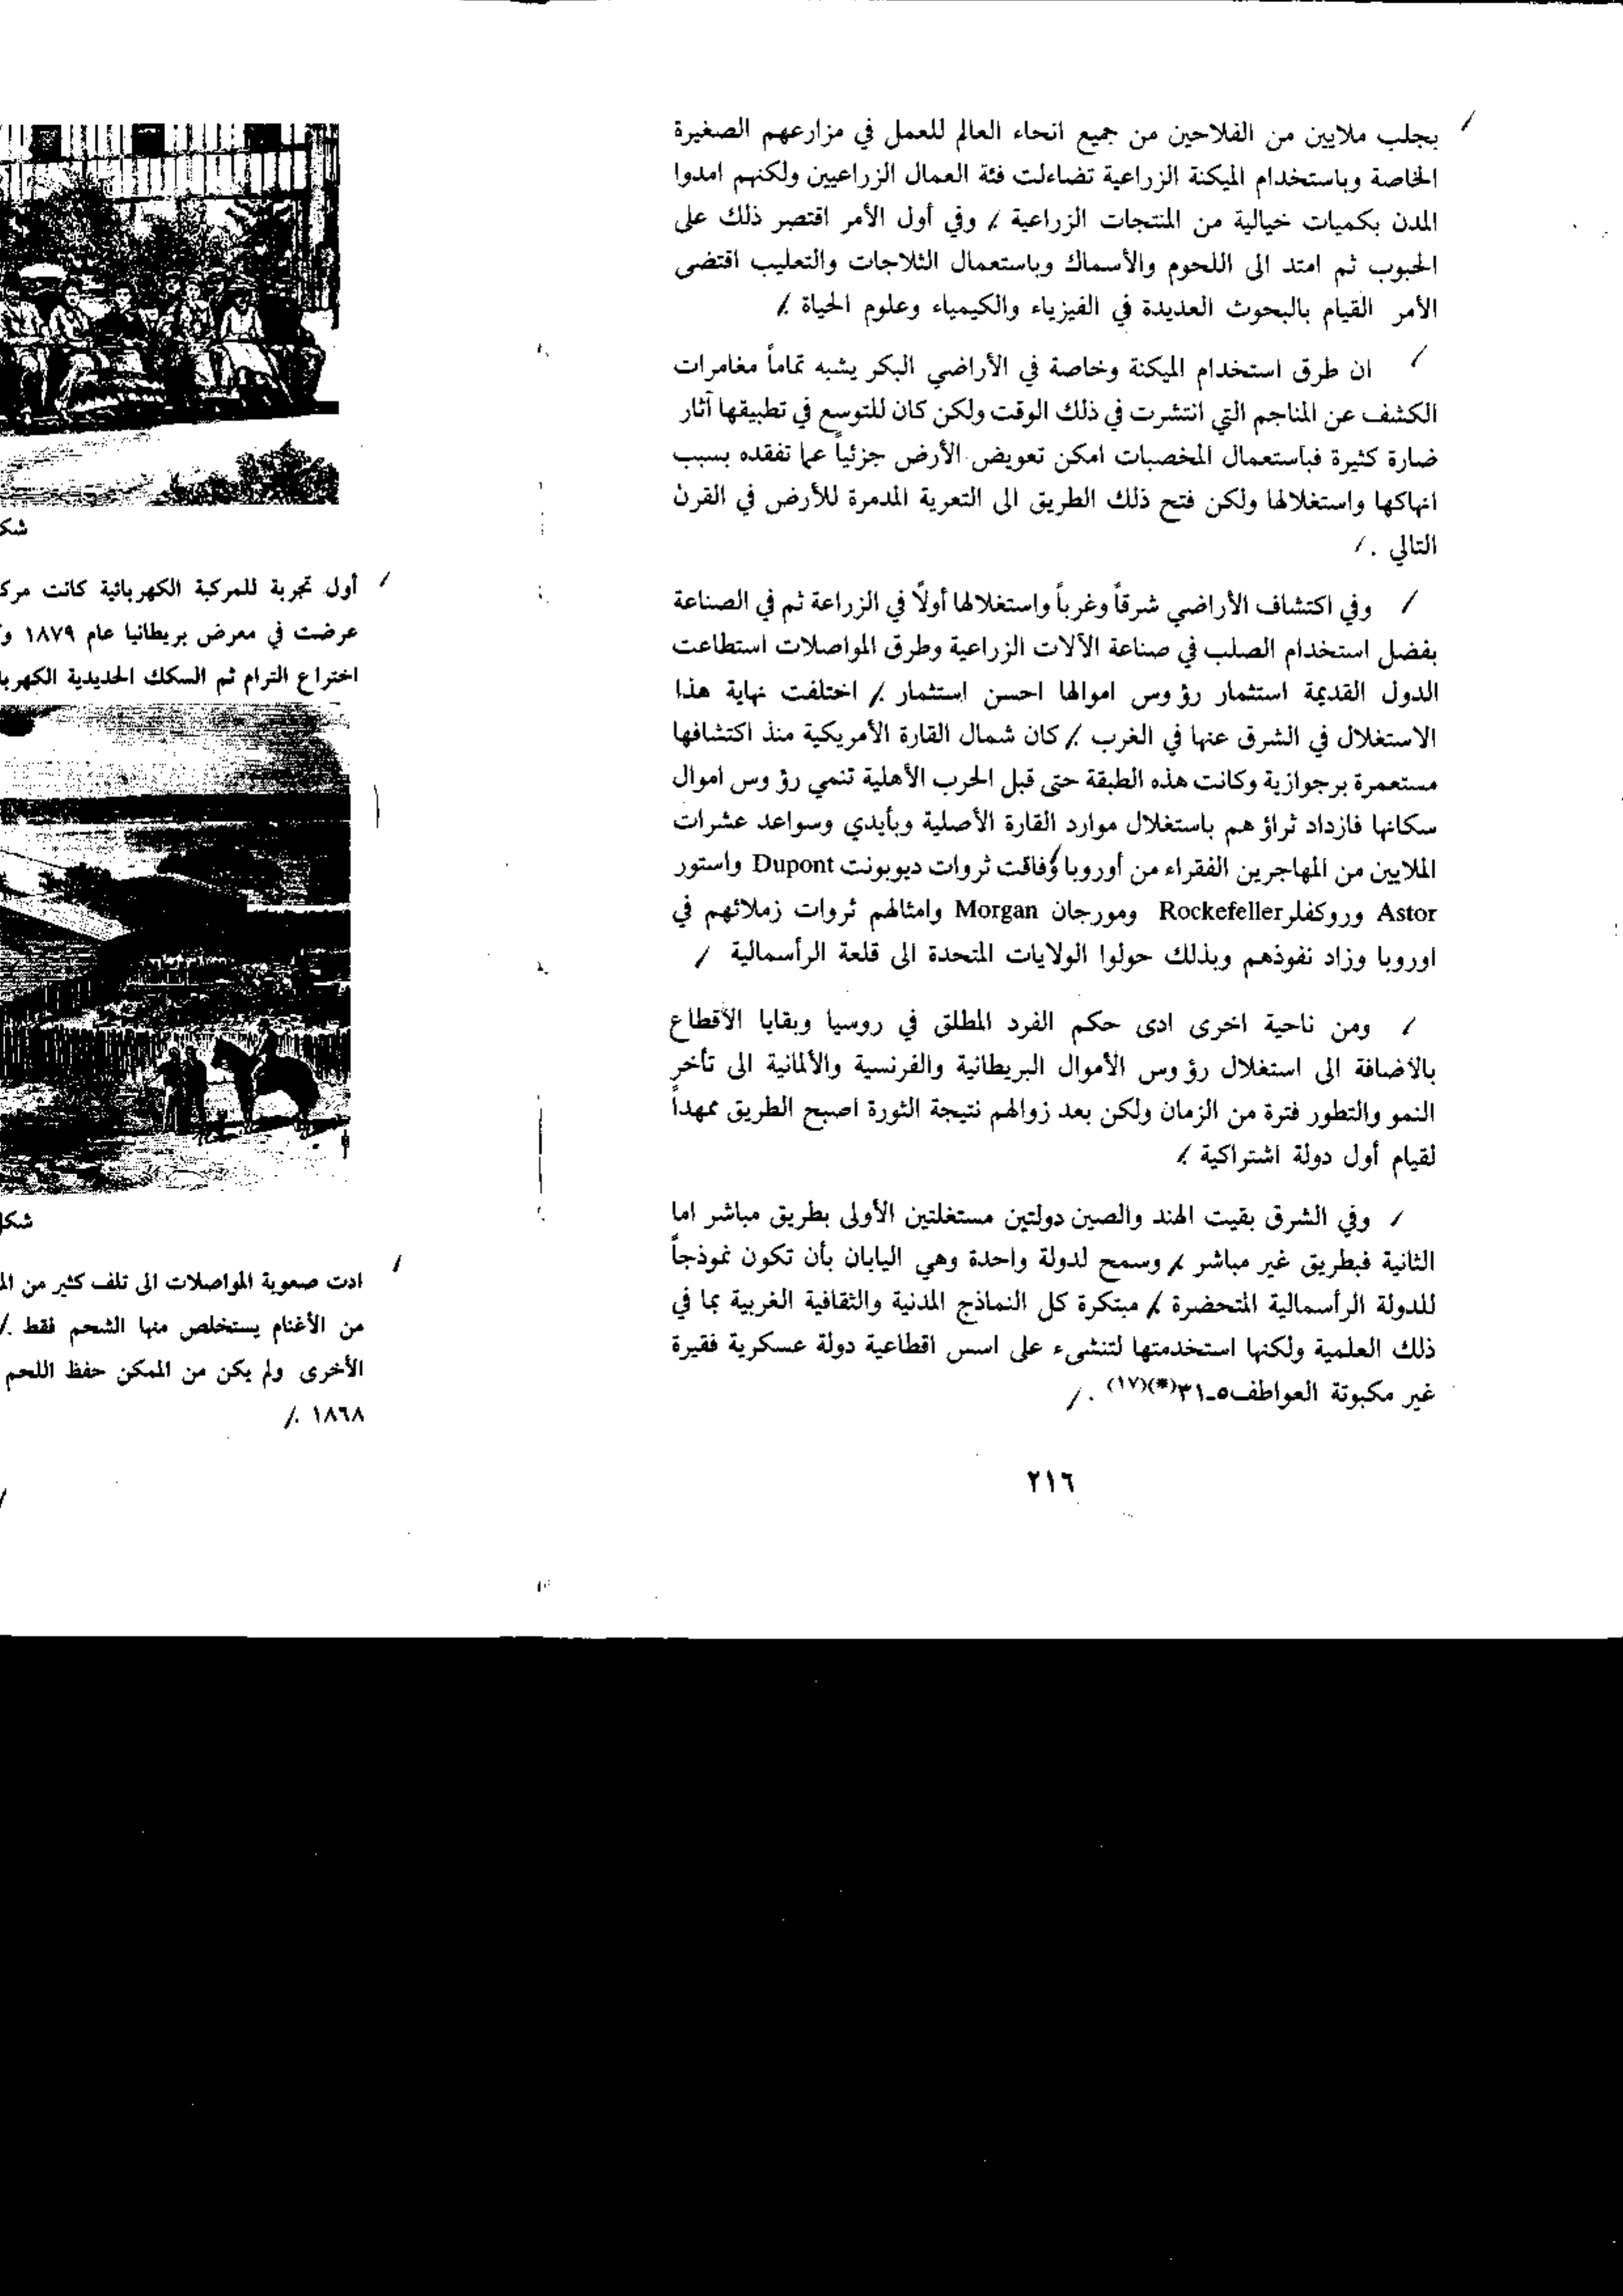 بجلب ملايين من الفلاحين من جميع انحاء العالم للعمل في مزارعهم الصغيرة
الخاصة وباستخدام الميكنة الزراعية تضاءلت فئة العمال الزراعيين ولكنهم امدوا
المدن بكميات خيالية من المنتجات الزراعية . وفي أول الأمر اقتصر ذلك على
الحبوب ثم امتد الى اللحوم والأسماك وباستعمال الثلاجات والتعليب اقتضى
الأمر القيام بالبحوث العديدة في الفيزياء والكيمياء وعلوم الحياة .
ان طرق استخدام الميكنة وخاصة في الأراضي البكر يشبه تماماً مغامرات
الكشف عن المناجم التي انتشرت في ذلك الوقت ولكن كان للتوسع في تطبيقها آثار
ضارة كثيرة فبأستعمال المخصبات امكن تعويض الأرض جزئياً عما تفقده بسبب
انهاكها واستغلالها ولكن فتح ذلك الطريق الى التعرية المدمرة للأرض في القرن
التالي .
وفي اكتشاف الأراضي شرقاً وغرباً واستغلالها أولاً في الزراعة ثم في الصناعة
بفضل استخدام الصلب في صناعة الآلات الزراعية وطرق المواصلات استطاعت
الدول القديمة استثمار رؤوس اموالها احسن استثمار . اختلفت نهاية هذا
الاستغلال في الشرق عنها في الغرب . كان شمال القارة الأمريكية منذ اكتشافها
مستعمرة برجوازية وكانت هذه الطبقة حتى قبل الحرب الأهلية تنمي رؤوس اموال
سكانها فازداد ثراؤهم باستغلال موارد القارة الأصلية وبأيدي وسواعد عشرات
الملايين من المهاجرين الفقراء من أوروبا وفاقت ثروات ديوبونت Dupont واستور
Astor وروكفلر Rockefeller ومورجان Morgan وامثالهم ثروات زملائهم في
اوروبا وزاد نفوذهم وبذلك حولوا الولايات المتحدة الى قلعة الرأسمالية
ومن ناحية اخرى ادى حكم الفرد المطلق في روسيا وبقايا الأقطاع
بالأضافة الى استغلال رؤوس الأموال البريطانية والفرنسية والألمانية الى تأخر
النمو والتطور فترة من الزمان ولكن بعد زوالهم نتيجة الثورة اصبح الطريق ممهداً
لقيام أول دولة اشتراكية .
وفي الشرق بقيت الهند والصين دولتين مستغلتين الأولى بطريق مباشر اما
الثانية فبطريق غير مباشر . وسمح لدولة واحدة وهي اليابان بأن تكون نموذجاً
للدولة الرأسمالية المتحضرة . مبتكرة كل النماذج المدنية والثقافية الغربية بما في
ذلك العلمية ولكنها استخدمتها لتنشىء على اسس اقطاعية دولة عسكرية فقيرة
غير مكبوتة العواطف ٥-٣١(*)(١٧) .
٢١٦
أول تجربة للمركبة الكهربائية كانت
عرضت في معرض بريطانيا عام ١٨٧٩
اختراع الترام ثم السكك الحديدية
ادت صعوبة المواصلات الى تلف كثير من
من الأغنام يستخلص منها الشحم فقط .
الأخرى ولم يكن من الممكن حفظ اللحم
١٨٦٨ .